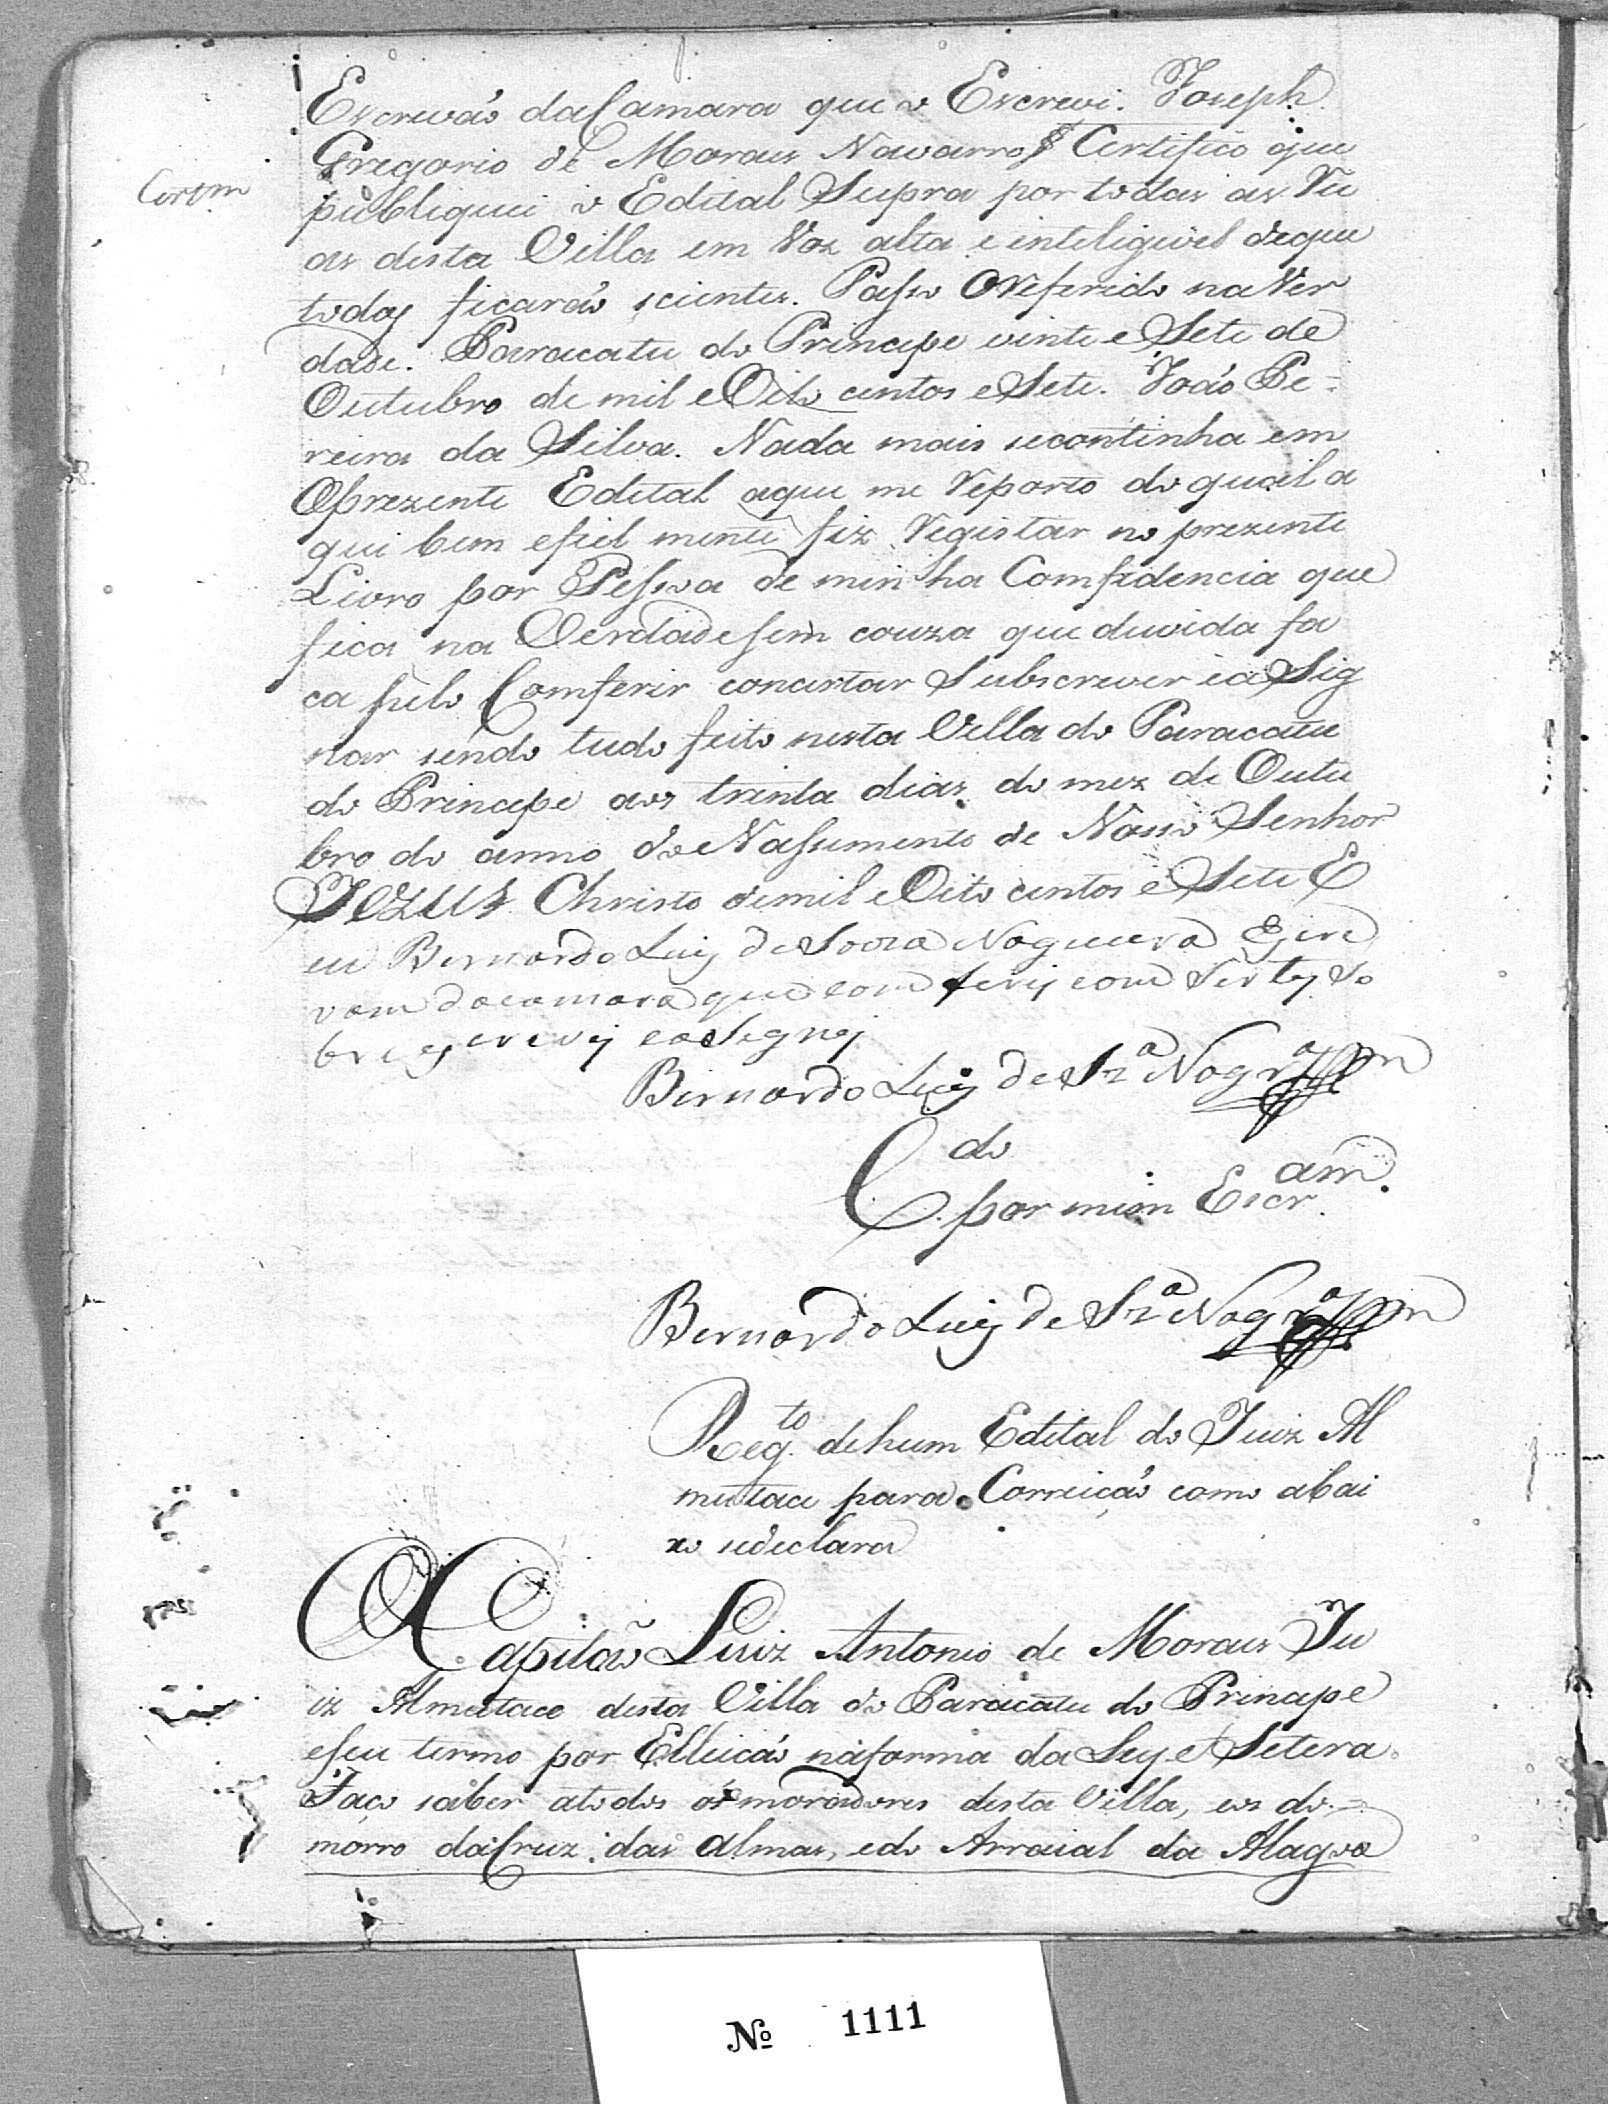 Escrivaõ da Camara que o Escrevi. Joseph
Gregorio de Moraes Navarro § Certifico que
publiquei o Edital Supra por todas as Ru
as desta Villa em Voz alta e inteligivel deque
todos ficaraõ scientes. Passo O Referido na Ver
dade. Paracatu do Principe vinte e Sete de
Outubro de mil e Oito centos e Sete. Joaõ Pe-
reira da Silva. Nada mais secontinha em
O prezente Edital aque me Reporto do qual a
qui bem efiel mente fiz Registar no prezente
Livro por Pessoa de minha Comfidencia que
fica na Verdade sem couza que duvida fa
ca pelo Comferir concertar Subscrever ea Sig
nar sendo tudo feito nesta Villa do Paracatu
do Principe aos trinta dias do mez de Outu
bro do anno do Nassimento de Nosso Senhor
JEZUS Christo demil e Oito centos e Sete E
eu Bernardo Luiz de Souza Nogueira Escri
vam dacamara que comferij comSertey So
brescrevij easigney
Bernardo Luiz de Sza Nogra
C.do
por mim Escram.
Bernardo Luiz de Sza Nogra
Regto. dehum Edital do Juiz Al
mutace para Correiçaõ como abai
xo sedeclara
O Capitaõ Luiz Antonio de Moraes Ju
iz Almutace desta Villa do Paracatu do Principe
eseu termo por Elleicaõ naforma da Ley et Setera.
Faço saber atodos os moradores desta Villa, eos do-
morro daCruz das Almas, edo Arraial da Alagoa
Nº 1111